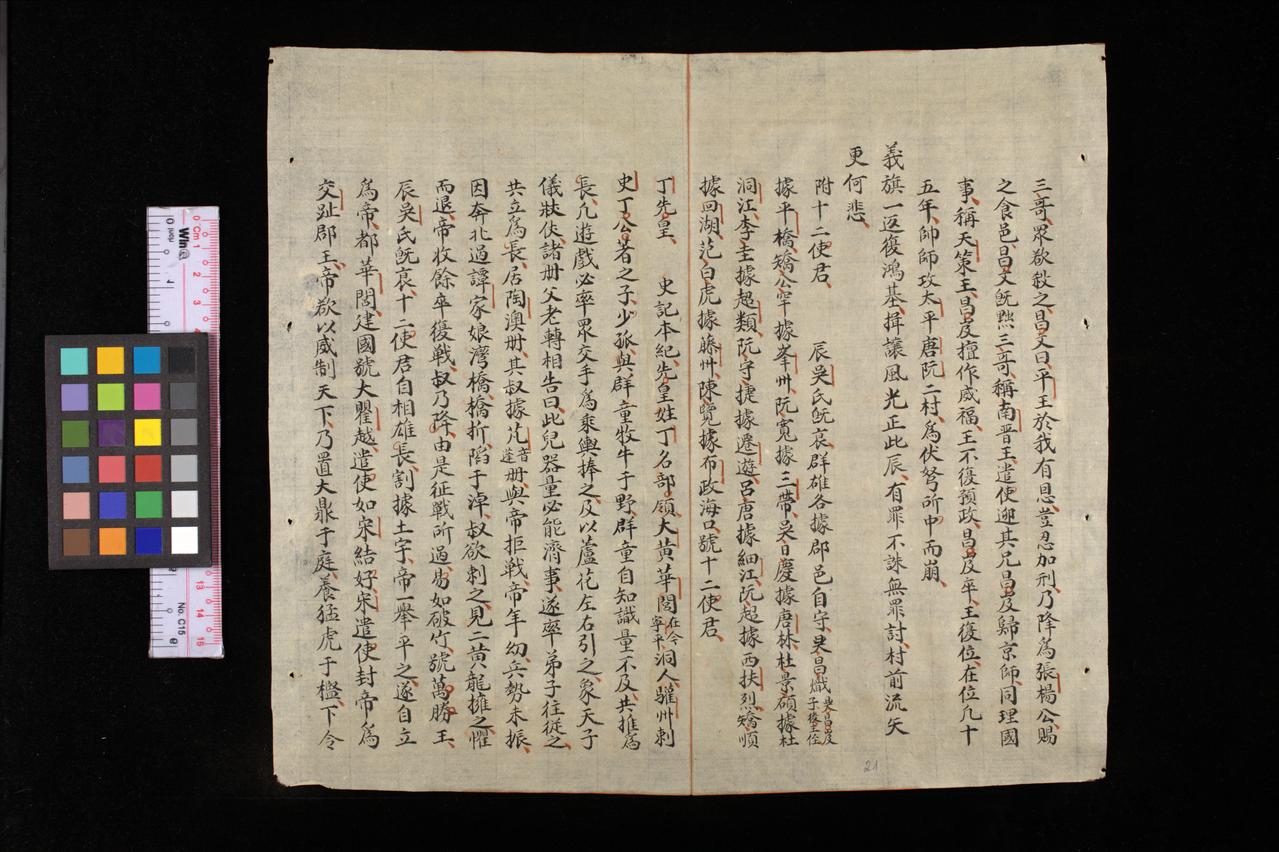 三哥衆欲殺之昌文曰平王於我有恩豈忍加刑乃降爲張楊公賜
之食邑昌文旣黜三哥稱南晋王遣使迎其兄昌岌歸京師同理國
事稱天策王昌岌擅作威福王不復預政昌岌卒王復位在位凢十
五年師師攻太平唐阮二村爲伏弩所中而崩
義旗一返復鴻基揖讓風光正此辰有罪不誅無罪討村前流矢
更何悲
附十二使君 辰吳氏旣哀群雄各據郡邑自守吳昌熾吳昌岌子後主侄
據平橋矯公罕據峯州阮寬據三帶吳日慶據唐林杜景碩據杜
洞江李圭據超類阮守捷據遷遊呂唐據細江阮超據西扶烈矯順
據回湖范白虎據藤州陳覽據布政海口號十二使君
丁先皇 史記本紀先皇姓丁名部領大黄華閭在今寧平洞人驩州刺
史丁公著之子少孤與群童牧牛于野群童自知識量不及共推爲
長凢遊戲必率衆交手爲乘輿捧之及以蘆花左右引之象天子
儀狀伏諸册父老轉相告曰此兒器量必能濟事遂率弟子往從之
共立爲長居陶澳册其叔據芃音蓬册與帝拒戰帝年幼兵勢未振
因奔北過譚家娘灣橋橋折陷于淖叔欲刺之見二黄龍擁之懼
而退帝收餘卒復戰叔乃降由是征戰所過昜如破竹號萬勝王
辰吳氏旣哀十二使君自相雄長割據土宇帝一舉平之遂自立
爲帝都華閭建國號大瞿越遣使如宋結好宋遣使封帝爲
交趾郡王帝欲以威制天下乃置大鼎于庭養猛虎于檻下令
21
Cm 1 2 3 4 13 14 15
No. C15